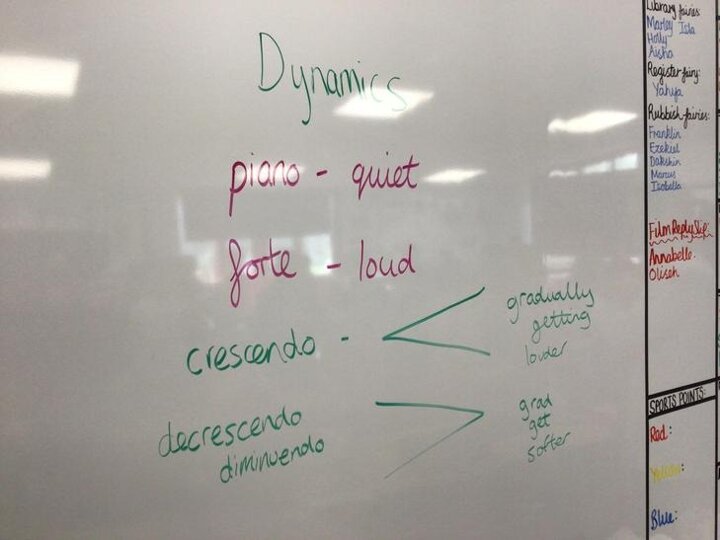 Dynamics
piano - quiet
forte - loud
crescendo -
gradually
getting
louder
decrescendo
diminuendo
grad
get
softer
Library fairies:
Marley Isla
Holly
Aisha
Register fairy:
Yahya
Rubbish fairies:
Franklin
Ezekiel
Dakshin
Marcus
Isobella
Film Reply Slip:
Annabelle
Oliseh
SPORTS POINTS:
Red:
Yellow:
Blue: